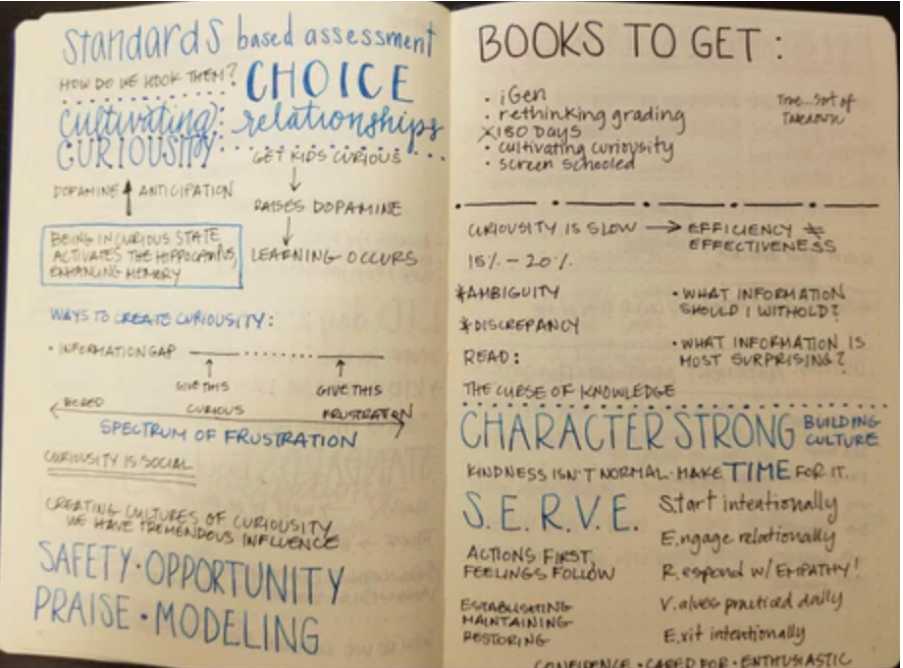 Standards based assessment
HOW DO WE HOOK THEM? CHOICE
cultivating relationships
CURIOUSITY
GET KIDS CURIOUS
DOPAMINE ↑ ANTICIPATION
RAISES DOPAMINE
BEING IN CURIOUS STATE
ACTIVATES THE HIPPOCAMPUS,
ENHANCING MEMORY
LEARNING OCCURS
WAYS TO CREATE CURIOUSITY:
• INFORMATION GAP
GIVE THIS
GIVE THIS
BORED
CURIOUS
FRUSTRATION
SPECTRUM OF FRUSTRATION
CURIOUSITY IS SOCIAL
CREATING CULTURES OF CURIOUSITY
WE HAVE TREMENDOUS INFLUENCE
SAFETY • OPPORTUNITY
PRAISE • MODELING
BOOKS TO GET:
• iGen
• rethinking grading
180 DAYS
• cultivating curiousity
• screen schooled
Time...sort of
Takedown
CURIOUSITY IS SLOW → EFFICIENCY ≠
EFFECTIVENESS
15% - 20%
*AMBIGUITY
*DISCREPANCY
• WHAT INFORMATION
SHOULD I WITHOLD?
• WHAT INFORMATION IS
MOST SURPRISING?
READ:
THE CURSE OF KNOWLEDGE
CHARACTER STRONG BUILDING
CULTURE
KINDNESS ISN'T NORMAL • MAKE TIME FOR IT.
S.E.R.V.E.
S.tart intentionally
E.ngage relationally
R.espond w/ EMPATHY!
V.alues practiced daily
E.xit intentionally
ACTIONS FIRST,
FEELINGS FOLLOW
ESTABLISHING
MAINTAINING
RESTORING
CONFIDENCE • CARED FOR • ENTHUSIASTIC